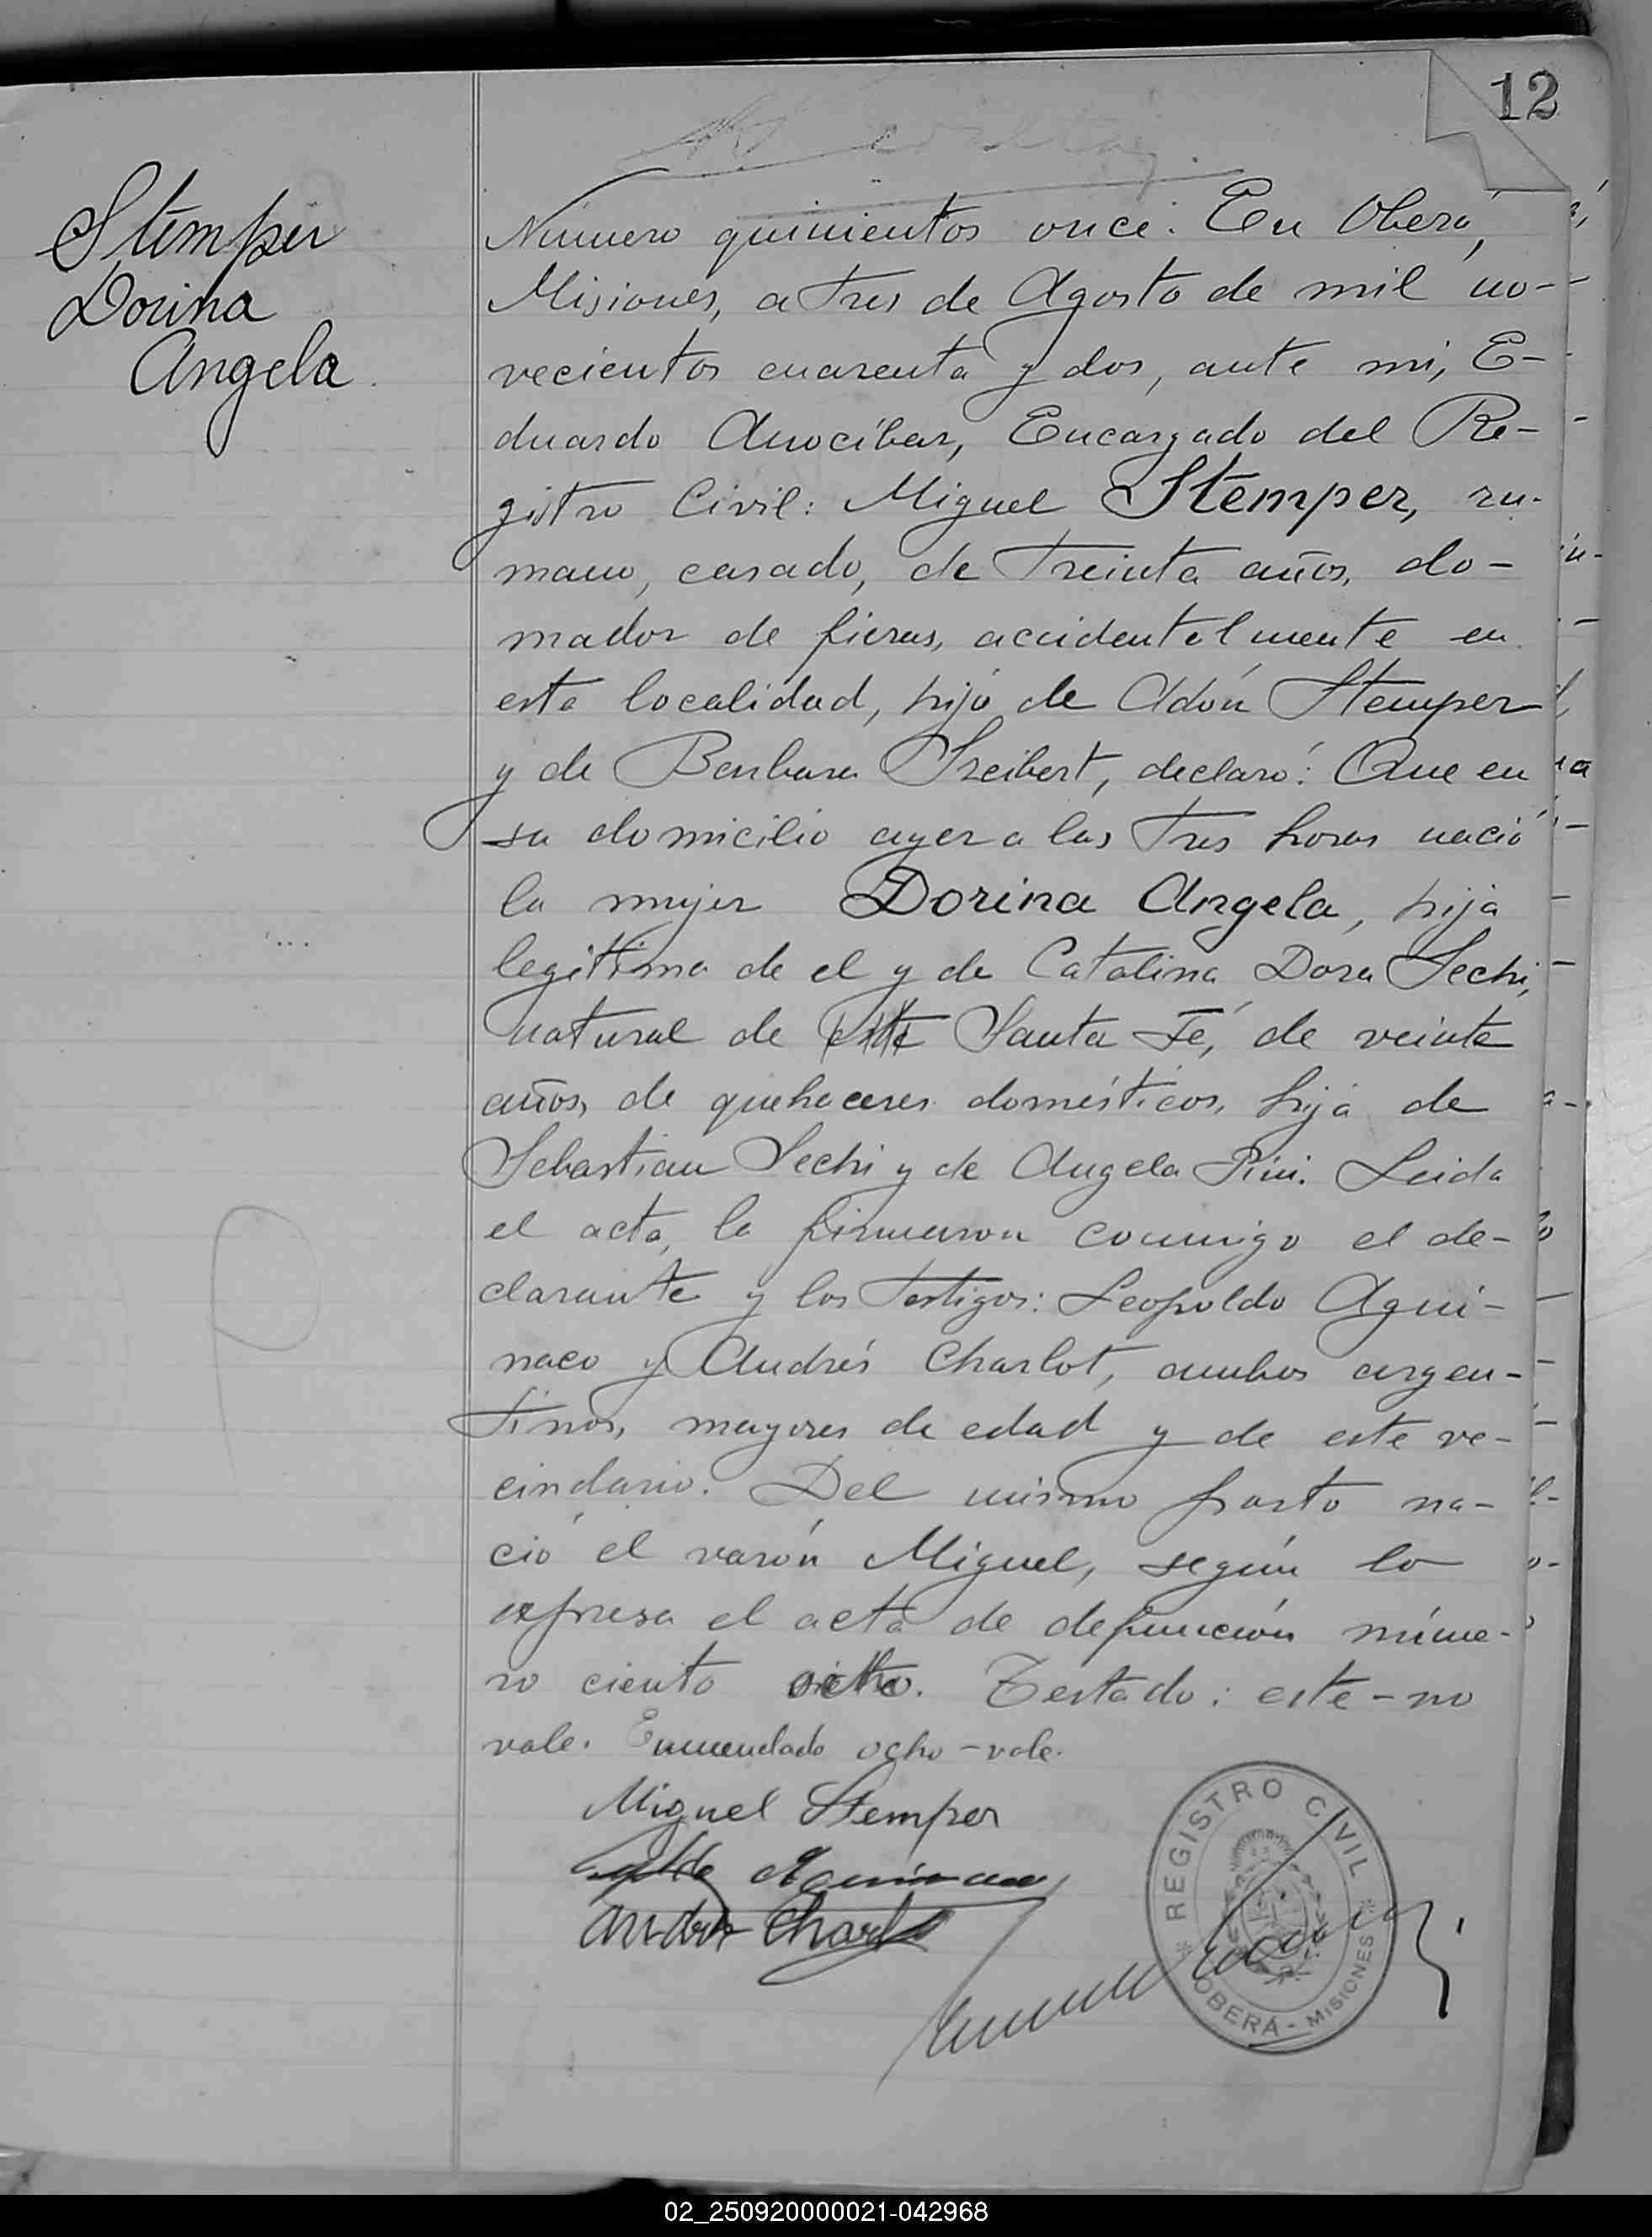 12
Stemper
Dorina
Angela.
Número quinientos once. En Oberá,
Misiones, a tres de Agosto de mil no-
vecientos cuarenta y dos, ante mi, E-
duardo Arocibar, Encargado del Re-
gistro Civil: Miguel Stemper, ru-
mano, casado, de treinta años, do-
mador de fieras, accidentalmente en
esta localidad, hijo de Adón Stemper
y de Barbara Freibert, declaró: Que en
su domicilio ayer a las tres horas nació
la mujer Dorina Angela, hija
legítima de el y de Catalina Dora Sechi,
natural de este Santa Fé, de veinte
años, de quehaceres domésticos, hija de
Sebastian Sechi y de Angela Pini. Leida
el acta, la firmaron conmigo el de-
clarante y los testigos: Leopoldo Agui-
naco y Andrés Charlot, ambos argen-
tinos, mayores de edad y de este ve-
cindario. Del mismo parto na-
ció el varón Miguel, según lo
expresa el acta de defunción núme-
ro ciento ocho. Testado: este-no
vale. Enmendado ocho-vale.
Miguel Stemper
Andrés Charlot
REGISTRO CIVIL
OBERÁ - MISIONES
02_250920000021-042968